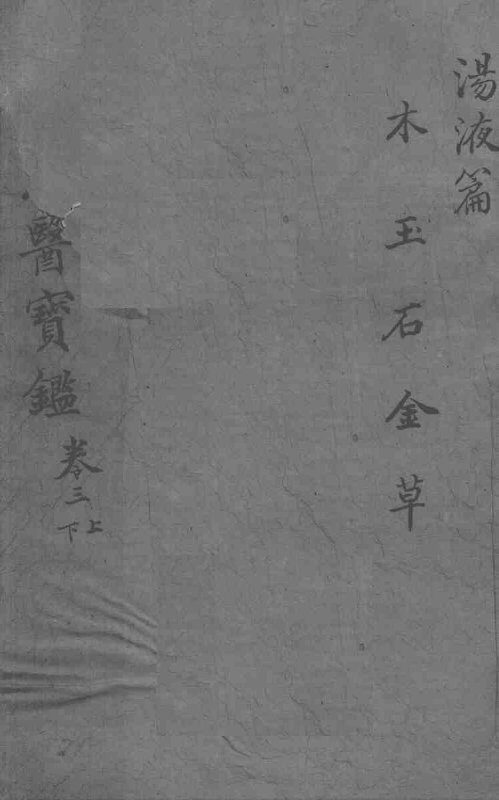 湯液篇
木玉石金草
醫寶鑑
卷三
上下